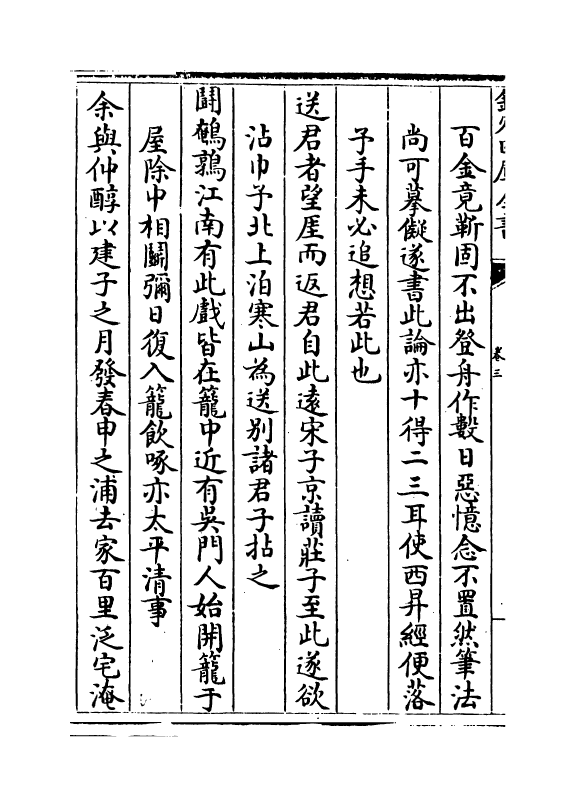 欽定四庫全書
卷三
百金竟靳固不出登舟作數日惡憶念不置然筆法
尚可摹儗遂書此論亦十得二三耳使西昇經便落
予手未必追想若此也
送君者望厓而返君自此遠宋子京讀莊子至此遂欲
沾巾予北上泊寒山為送别諸君子拈之
鬭鵪鶉江南有此戲皆在籠中近有吳門人始開籠于
屋除中相鬭彌日復入籠飲啄亦太平清事
余與仲醇以建子之月發春申之浦去家百里泛宅淹